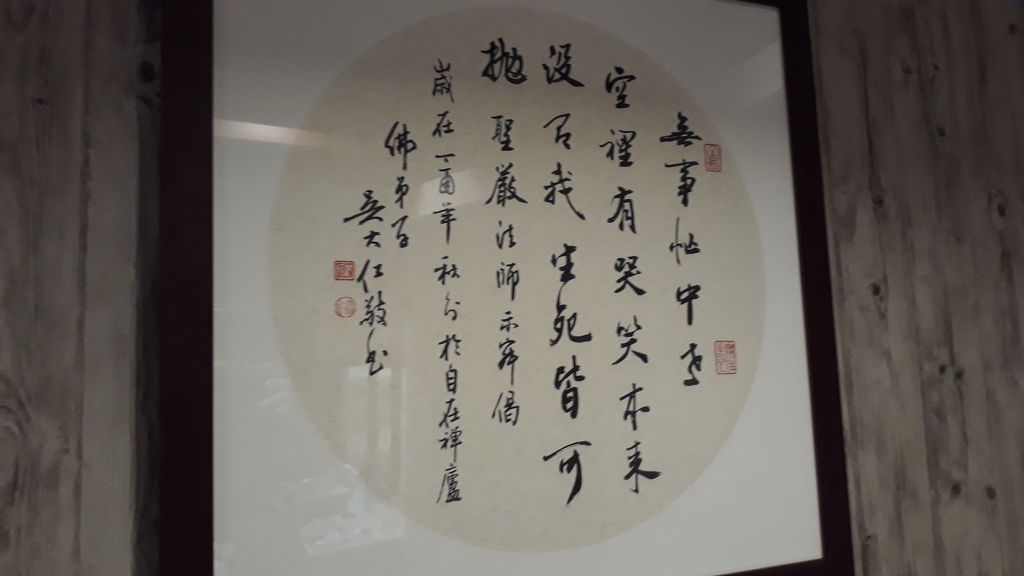 無事忙中老
空裡有哭笑本来
没有我生死皆可
拋 聖嚴法師示寂偈
歲在丁酉年秋月於自在禅廬
佛弟子
吳大仁敬書